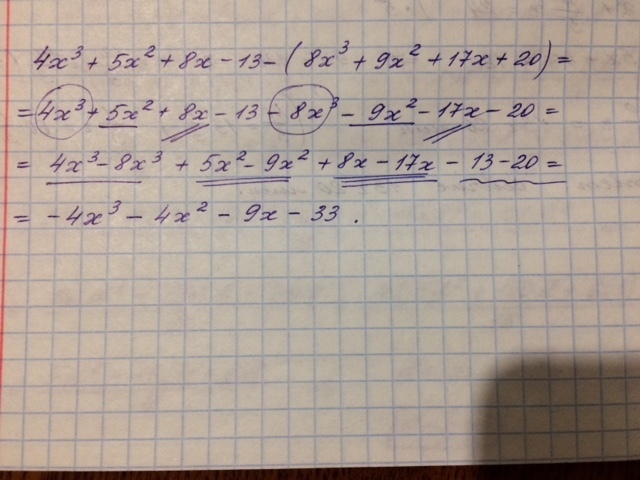 4x³ + 5x² + 8x - 13 - (8x³ + 9x² + 17x + 20) =
= 4x³ + 5x² + 8x - 13 - 8x³ - 9x² - 17x - 20 =
= 4x³ - 8x³ + 5x² - 9x² + 8x - 17x - 13 - 20 =
= -4x³ - 4x² - 9x - 33 .